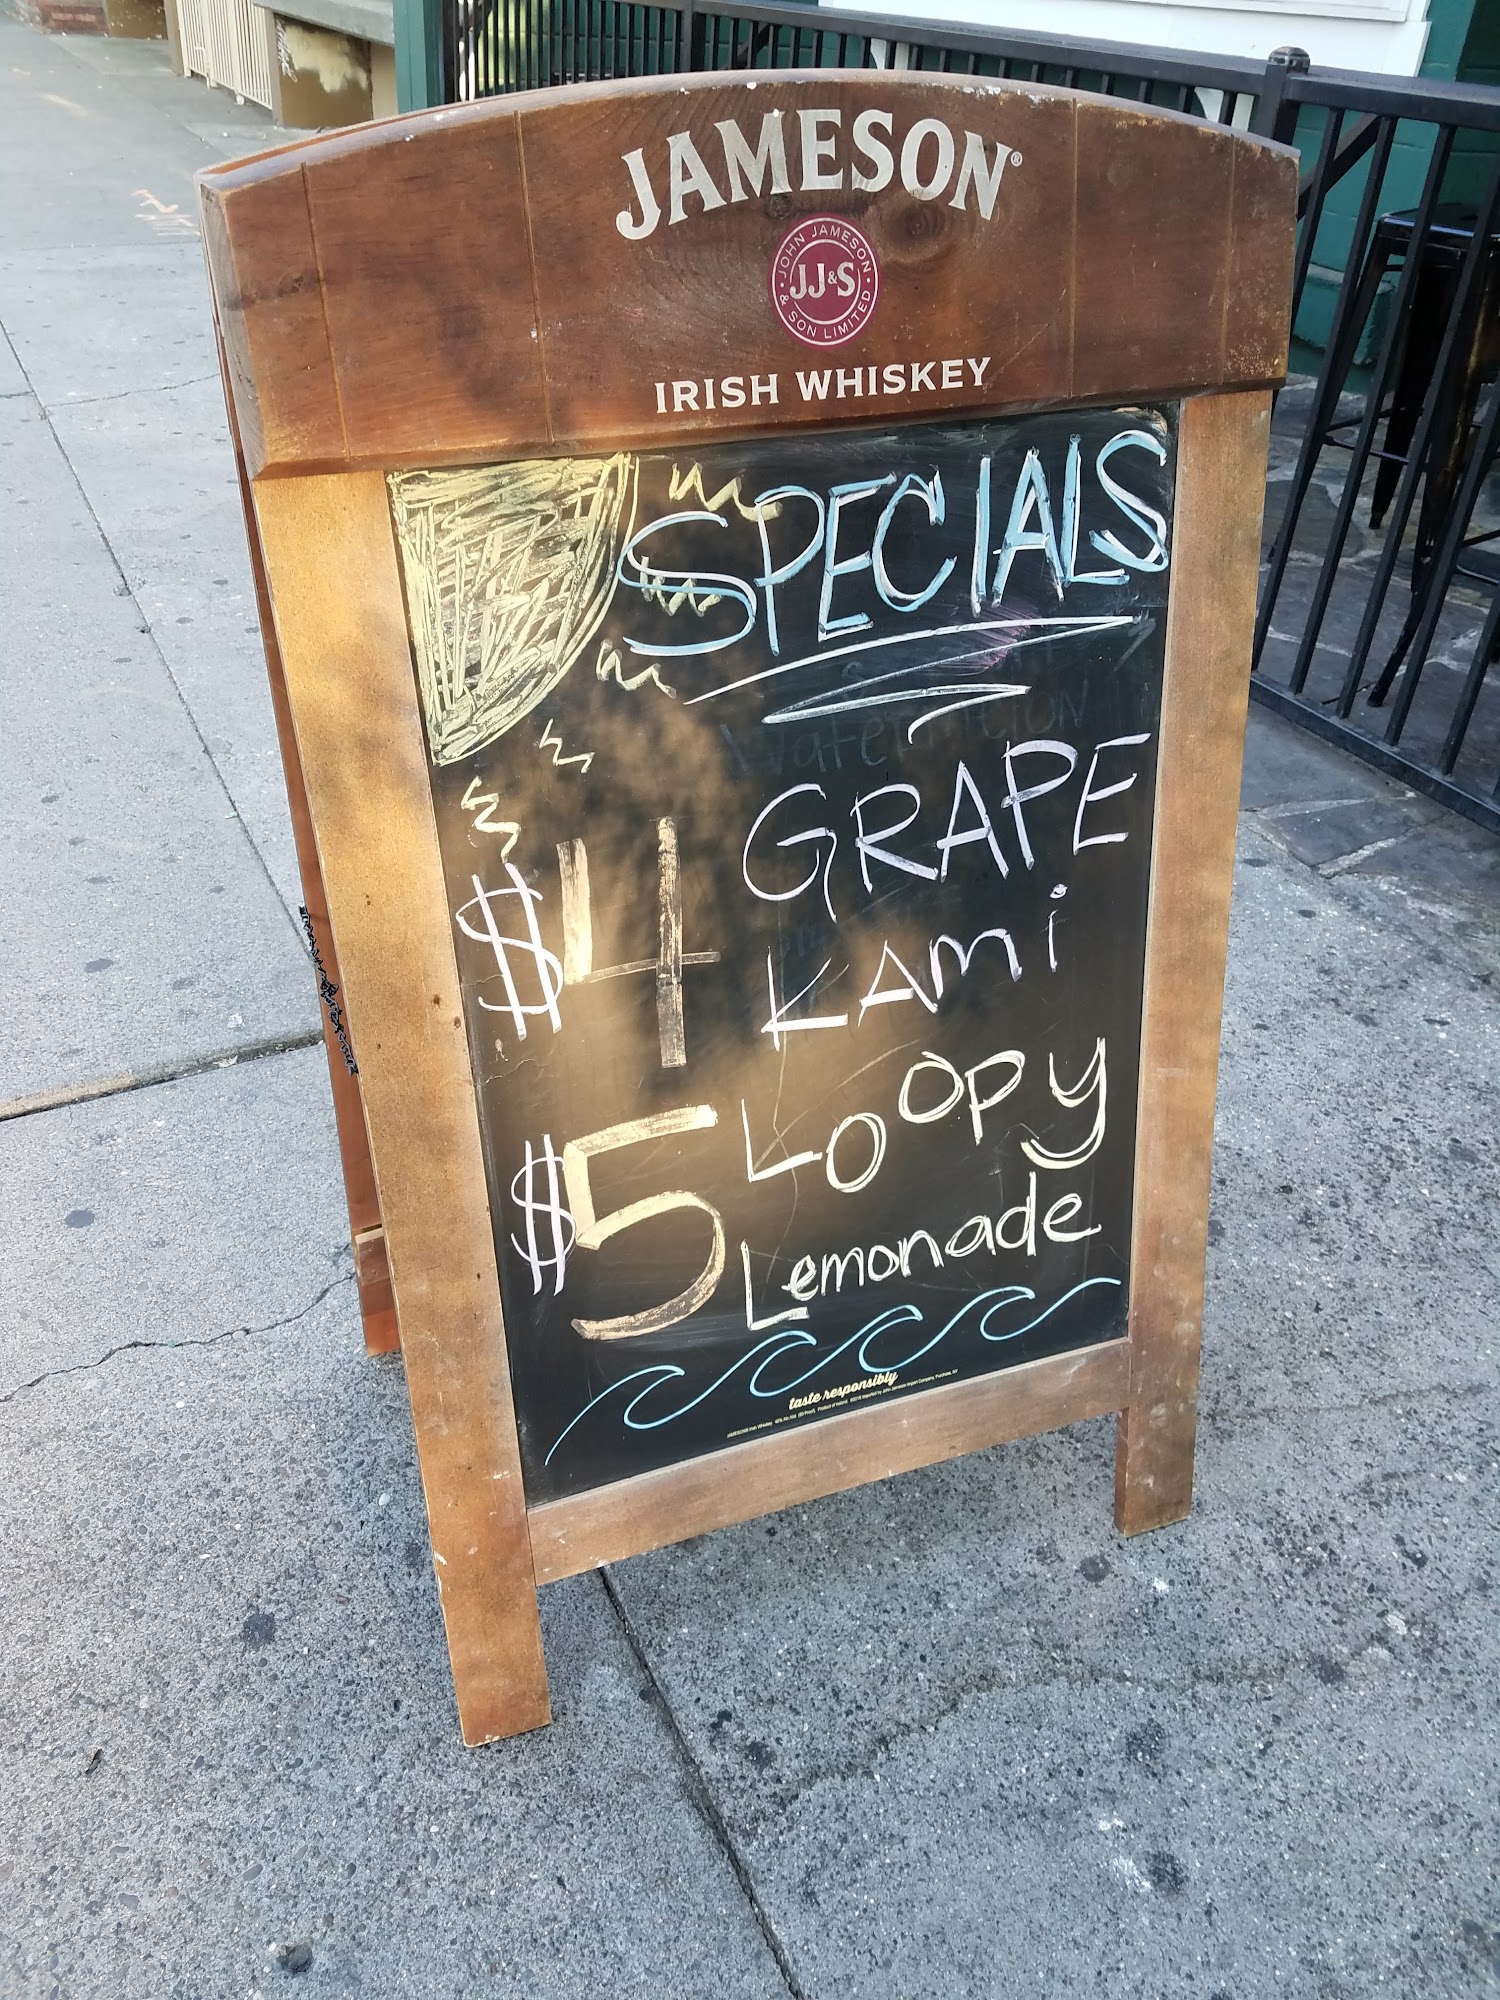 JAMESON®
JOHN JAMESON
JJ&S
& SON LIMITED
IRISH WHISKEY
SPECIALS
&
Watermelon
$4 GRAPE
KAMi
$5 LOOPY
Lemonade
taste responsibly